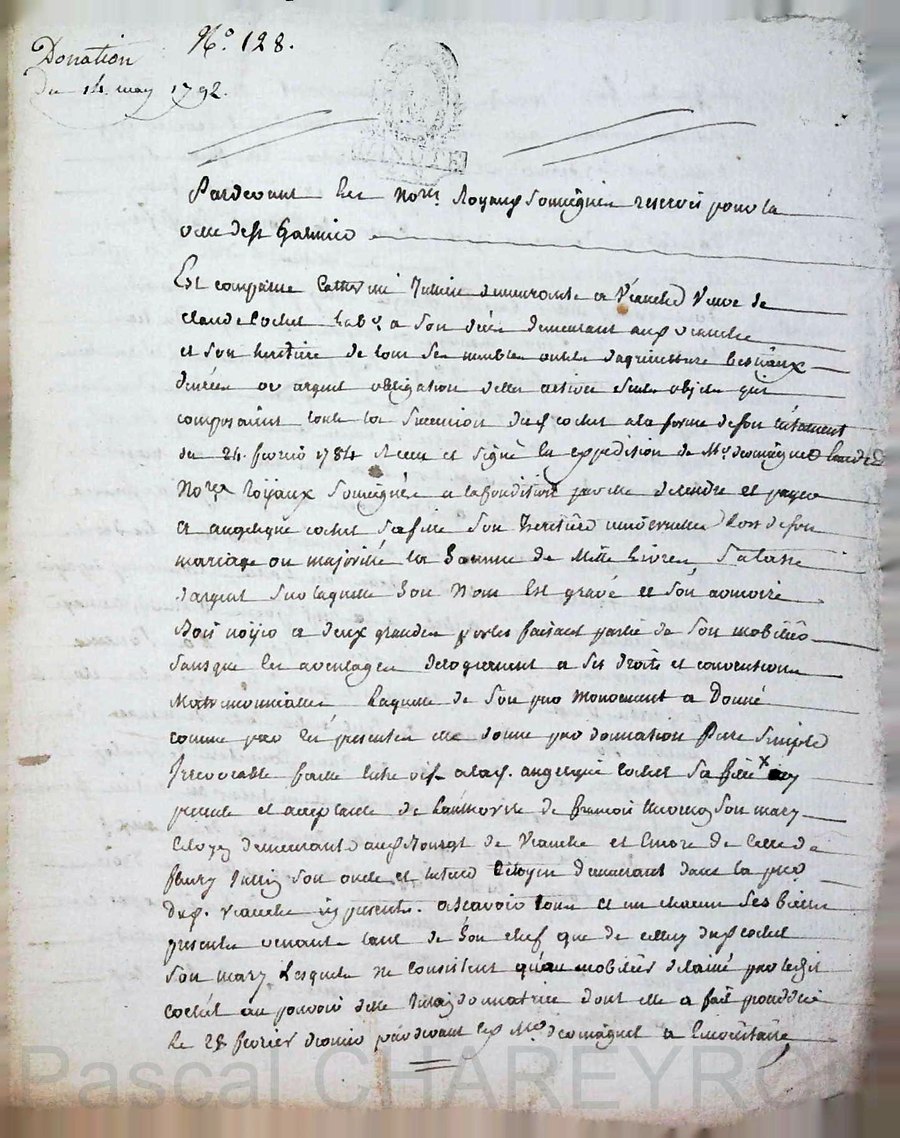 Donation N.° 128.
Du 14. may 1792.
MINUTE
Pardevant les No.res Royaux soussignés reservés pour la
ville de St Galmier
Est comparue Catherine Jullien demeurante a Veauche Veuve de
Claude Cochet lab.r a son décès demeurant aud. Veauche
et son heritière de tous ses meubles outils d'agriculture bestiaux
denrées or argent obligation dettes actives seuls objets qui
composaient toute la succession dud. cochet a la forme de son testament
du 24. fevrier 1784 recu et signé la expedition de M.e
No.re royaux soussigné a la condition par elle de rendre et payer
a angelique cochet sa fille son heritière universelle lors de son
mariage ou majorité la somme de Mille livres sa tasse
d'argent sur laquelle son Nom est gravé et son armoire
Bois noyer a deux grandes portes faisant partie de son mobilier
sans que les aventages derogeassent a ses droits et conventions
Matrimonialles Laquelle de son pur mouvement a Donné
comme par ces présentes elle donne par donnation Pure Simple
Irrevocable faitte entre vifs a lad. angelique cochet sa fille x icy
presente et acceptante de L'authorité de françois son mary
Citoyen demeurant aud. Bourg de Veauche et encore de celle de
fleury Jullien son oncle et Citoyen demeurant dans la p.sse
dud. Veauche icy presents. ascavoir tous et un chacun ses biens
presents venant tant de son chef que de celluy dud. cochet
son mary Lesquels ne consistent qu'au mobilier delaissé par ledit
cochet au pouvoir de lad. Jullien donnatrice dont elle a fait proceder
le 28 fevrier dernier pardevant led. M.e a L'inventaire
Pascal CHAREYRON